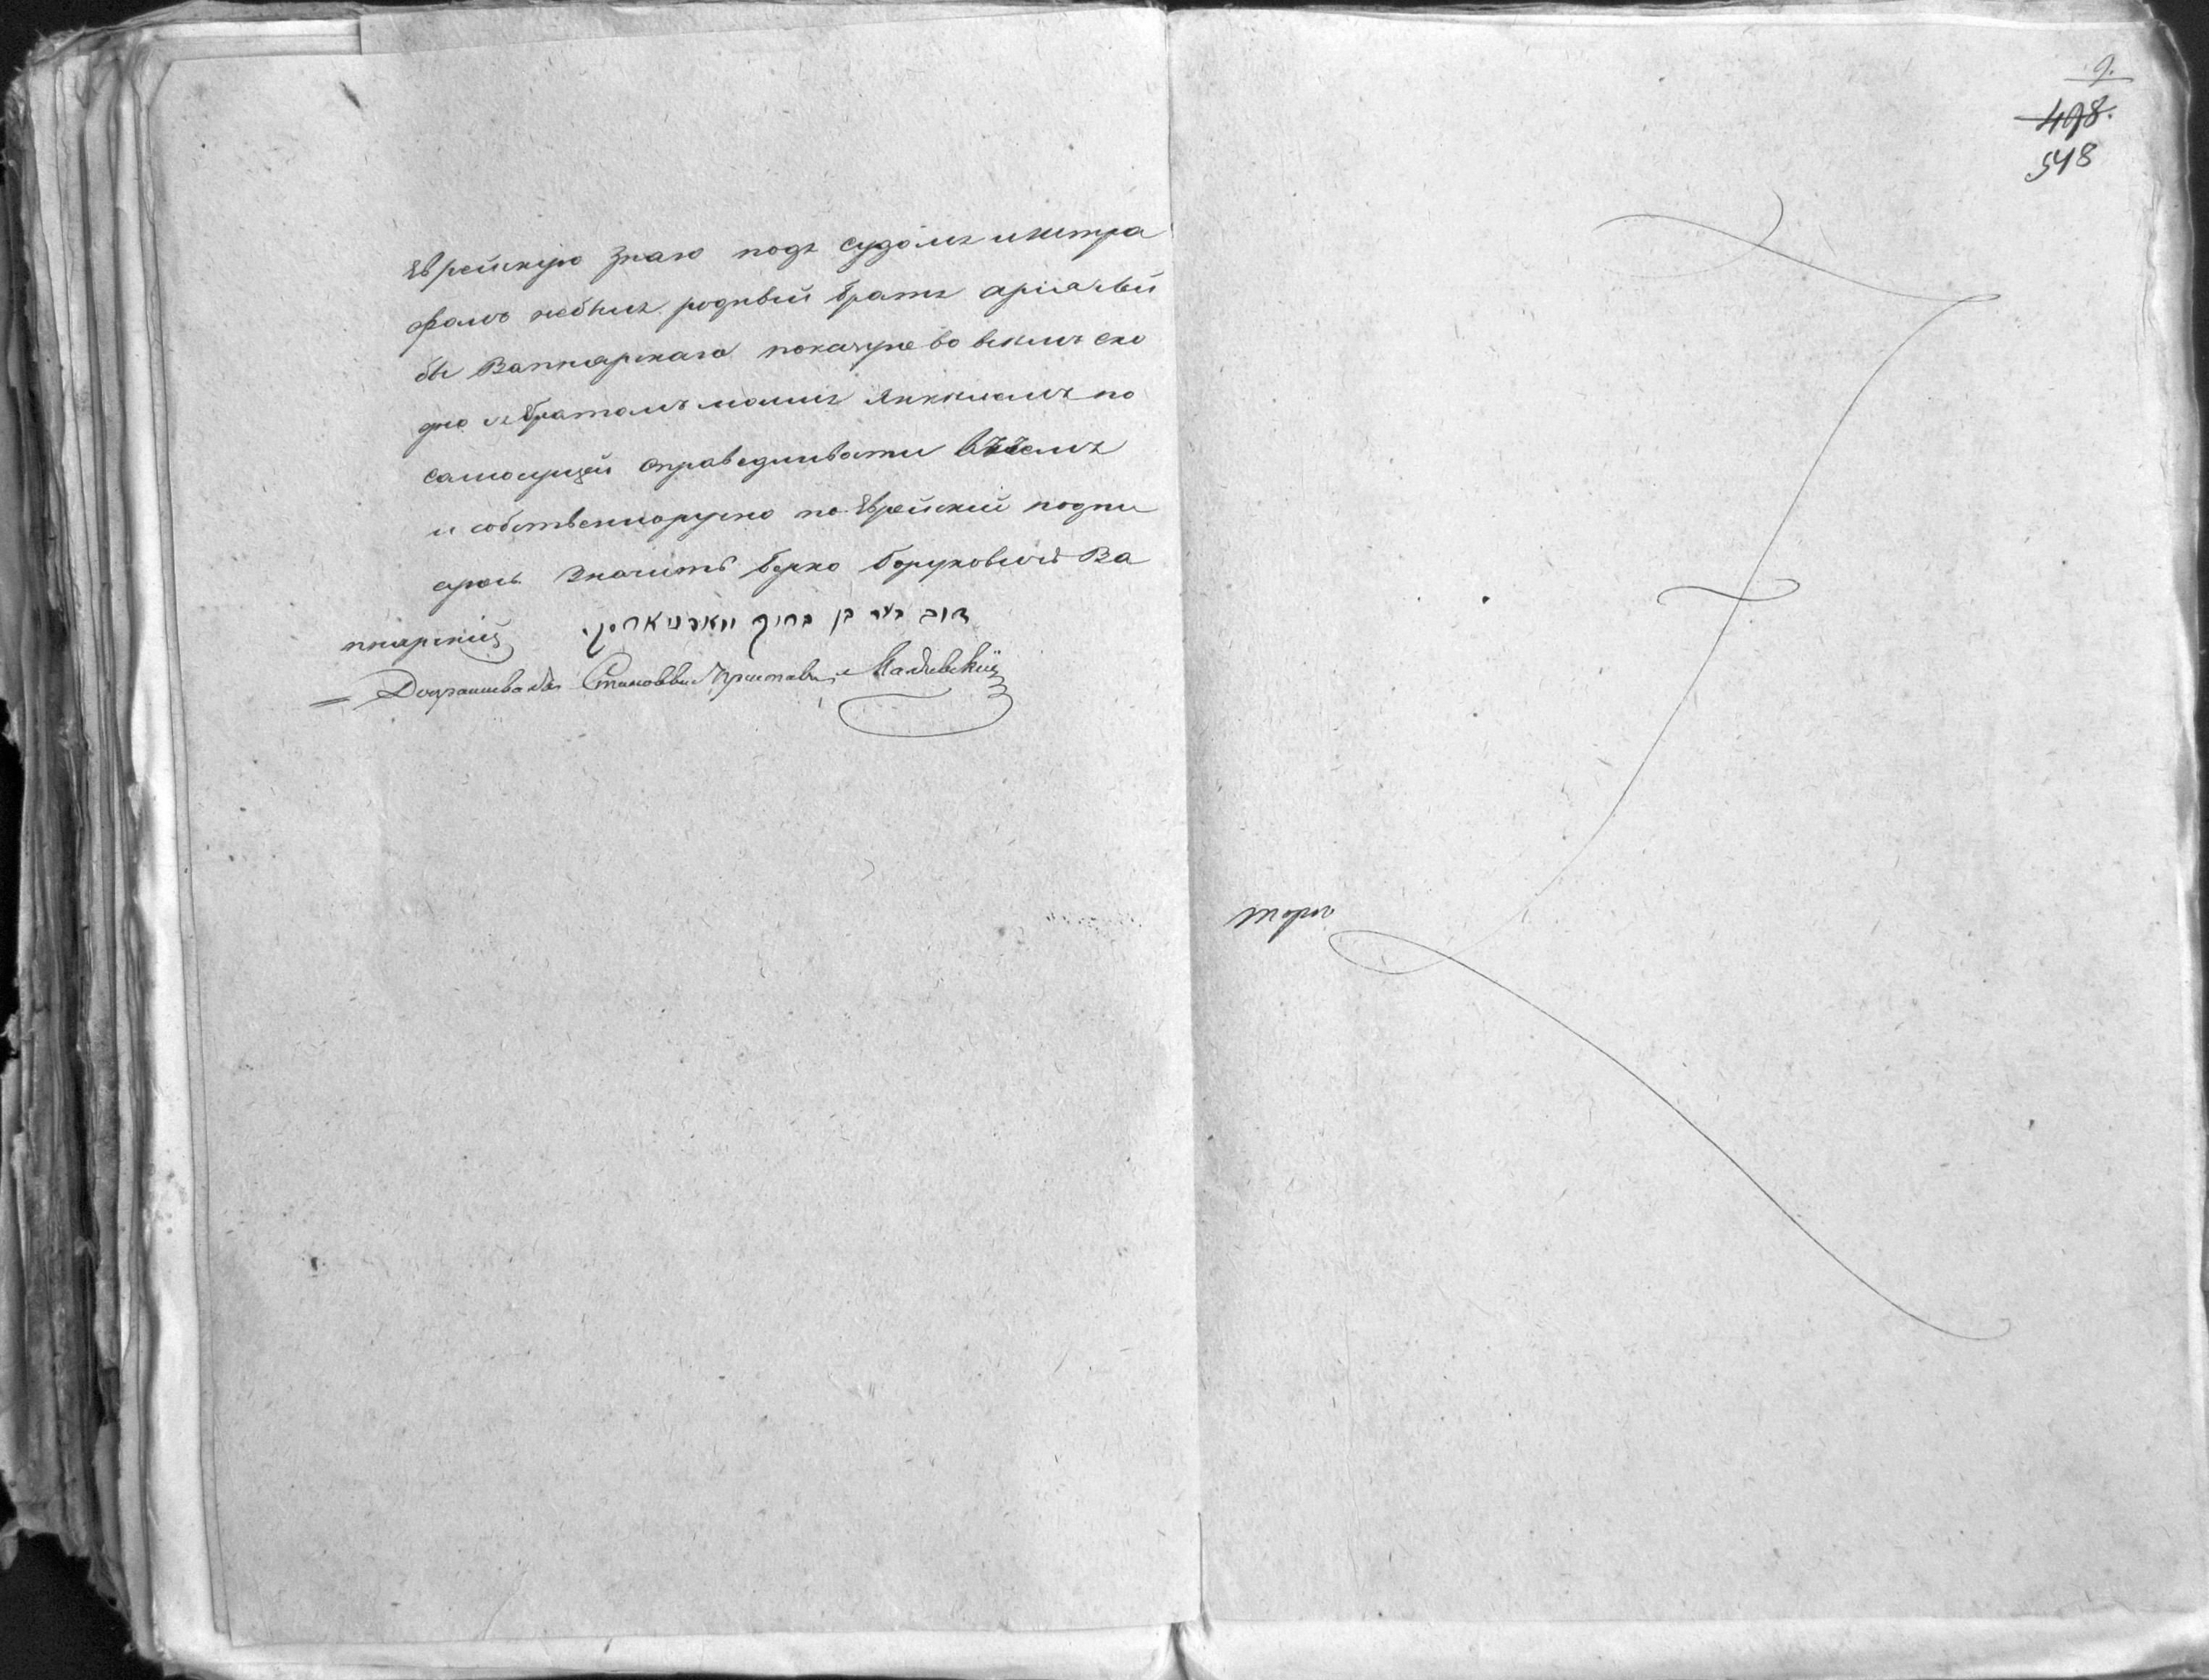 Еврейскую знаю подъ судомъ и штра
фомъ небылъ родный братъ
бы Вапнярскаго показую во всемъ схо
дно съ братомъ моимъ Янкелемъ по
самой сущей справедливости въ чемъ
и собственноручно по Еврейский подпи
суюсь значитъ Берко Боруховичъ Ва
пнярскій דוב בער בן ברוך וואפניארסקי
Допрашивалъ Становый Приставъ
9.
498.
548